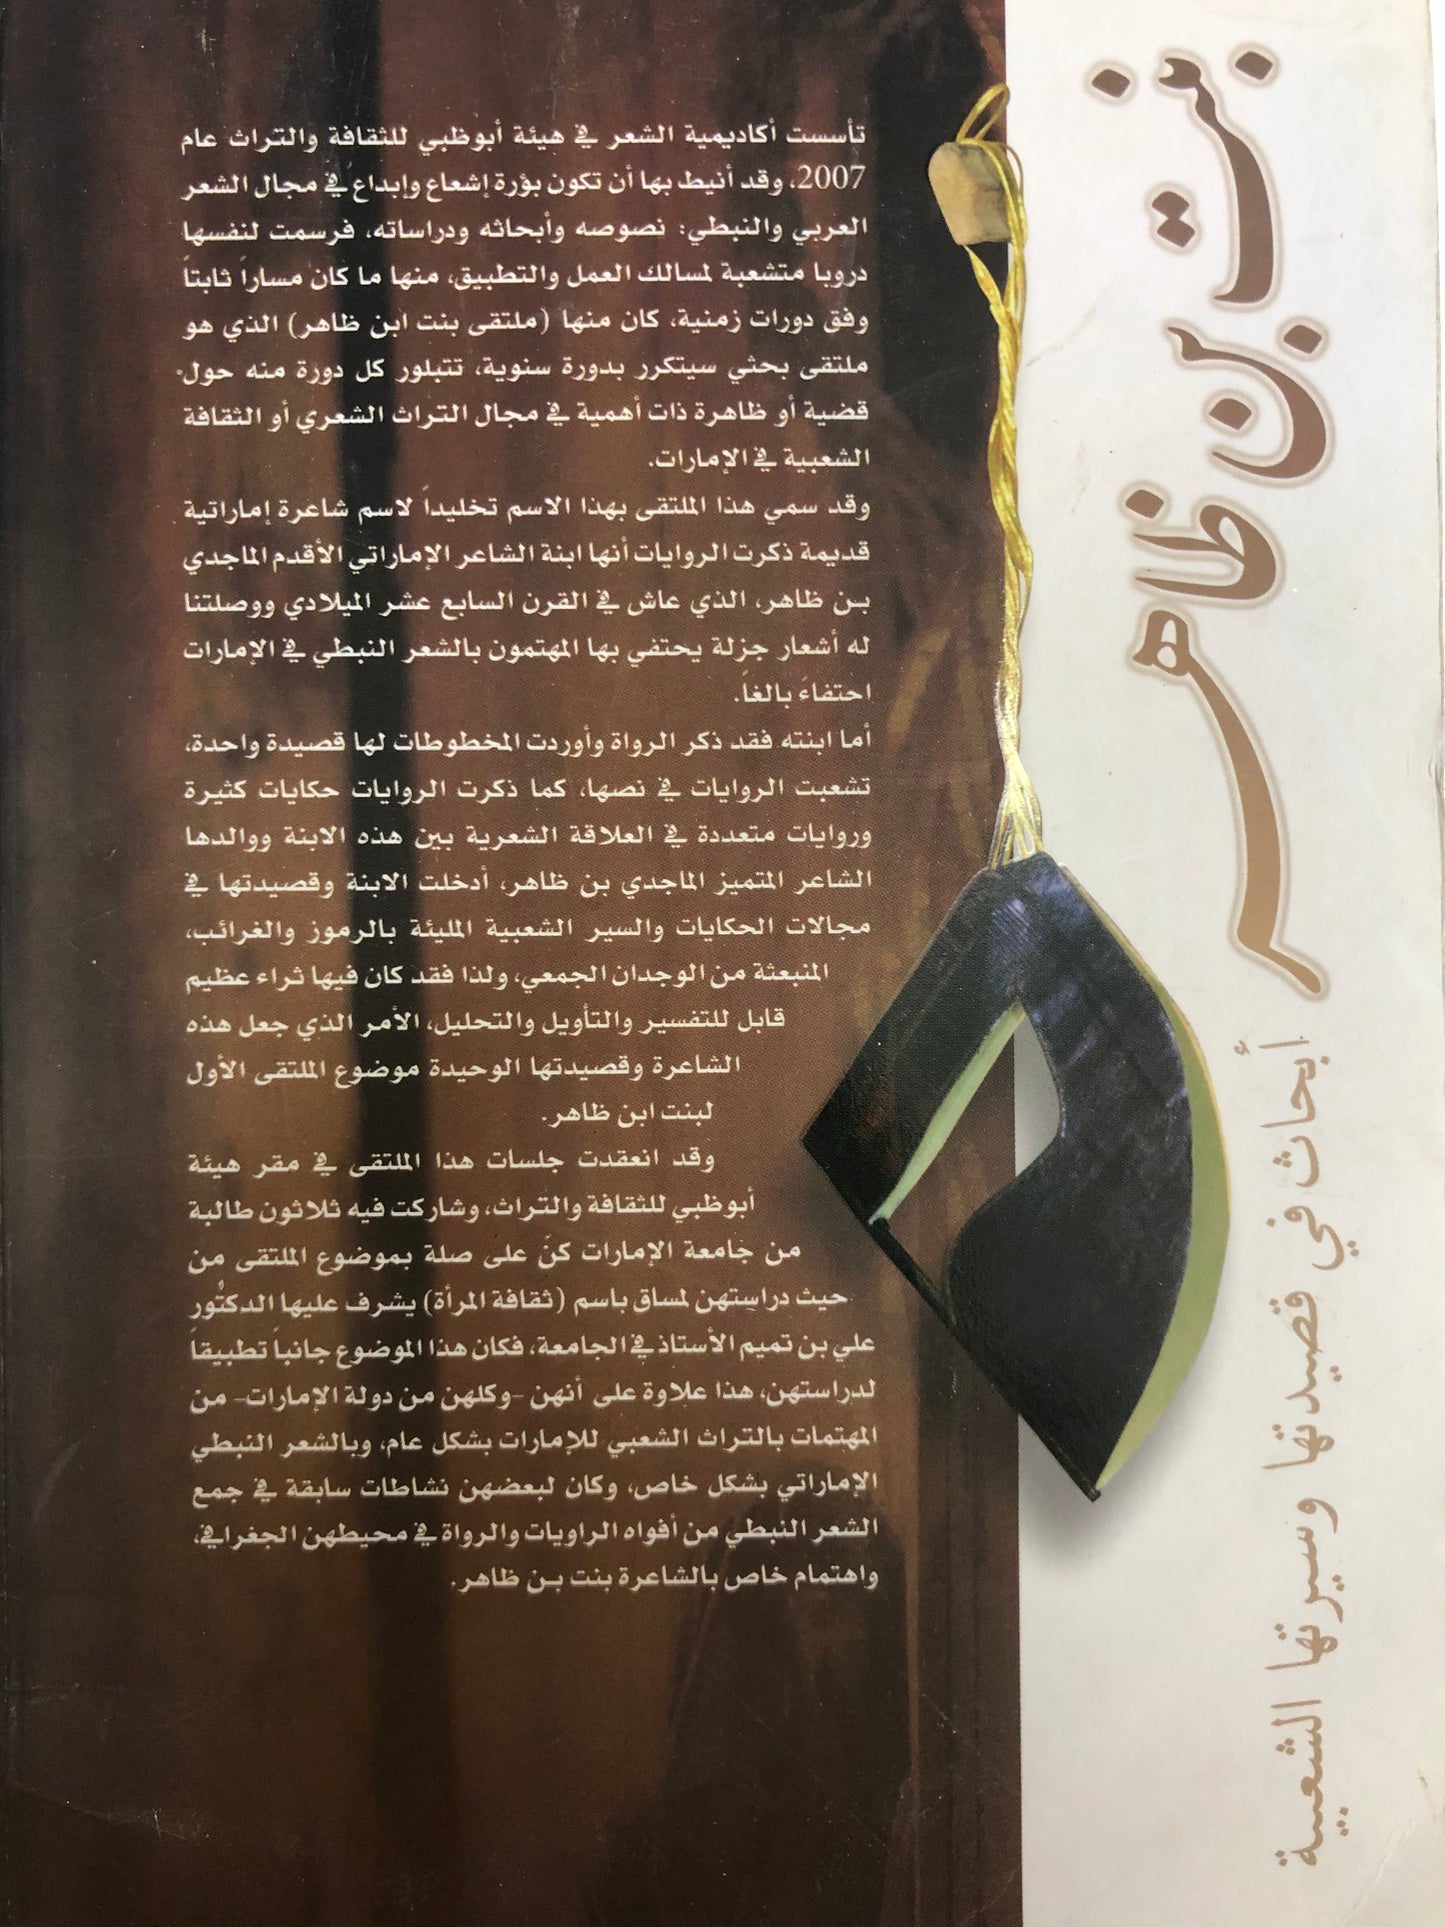 بنت بن ظاهر
أبحاث في قصيدتها وسيرتها الشعبية
تأسست أكاديمية الشعر في هيئة أبوظبي للثقافة والتراث عام
2007، وقد أنيط بها أن تكون بؤرة إشعاع وإبداع في مجال الشعر
العربي والنبطي: نصوصه وأبحاثه ودراساته، فرسمت لنفسها
دروبا متشعبة لمسالك العمل والتطبيق، منها ما كان مساراً ثابتاً
وفق دورات زمنية، كان منها (ملتقى بنت ابن ظاهر) الذي هو
ملتقى بحثي سيتكرر بدورة سنوية، تتبلور كل دورة منه حول
قضية أو ظاهرة ذات أهمية في مجال التراث الشعري أو الثقافة
الشعبية في الإمارات.
وقد سمي هذا الملتقى بهذا الاسم تخليداً لاسم شاعرة إماراتية
قديمة ذكرت الروايات أنها ابنة الشاعر الإماراتي الأقدم الماجدي
بن ظاهر، الذي عاش في القرن السابع عشر الميلادي ووصلتنا
له أشعار جزلة يحتفي بها المهتمون بالشعر النبطي في الإمارات
احتفاءَ بالغاً.
أما ابنته فقد ذكر الرواة وأوردت المخطوطات لها قصيدة واحدة،
تشعبت الروايات في نصها، كما ذكرت الروايات حكايات كثيرة
وروايات متعددة في العلاقة الشعرية بين هذه الابنة ووالدها
الشاعر المتميز الماجدي بن ظاهر، أدخلت الابنة وقصيدتها في
مجالات الحكايات والسير الشعبية المليئة بالرموز والغرائب،
المنبعثة من الوجدان الجمعي، ولذا فقد كان فيها ثراء عظيم
قابل للتفسير والتأويل والتحليل، الأمر الذي جعل هذه
الشاعرة وقصيدتها الوحيدة موضوع الملتقى الأول
لبنت ابن ظاهر.
وقد انعقدت جلسات هذا الملتقى في مقر هيئة
أبوظبي للثقافة والتراث، وشاركت فيه ثلاثون طالبة
من جامعة الإمارات كنّ على صلة بموضوع الملتقى من
حيث دراستهن لمساق باسم (ثقافة المرأة) يشرف عليها الدكتُور
علي بن تميم الأستاذ في الجامعة، فكان هذا الموضوع جانباً تطبيقاً
لدراستهن، هذا علاوة على أنهن -وكلهن من دولة الإمارات- من
المهتمات بالتراث الشعبي للإمارات بشكل عام، وبالشعر النبطي
الإماراتي بشكل خاص، وكان لبعضهن نشاطات سابقة في جمع
الشعر النبطي من أفواه الراويات والرواة في محيطهن الجغرافي،
واهتمام خاص بالشاعرة بنت بن ظاهر.